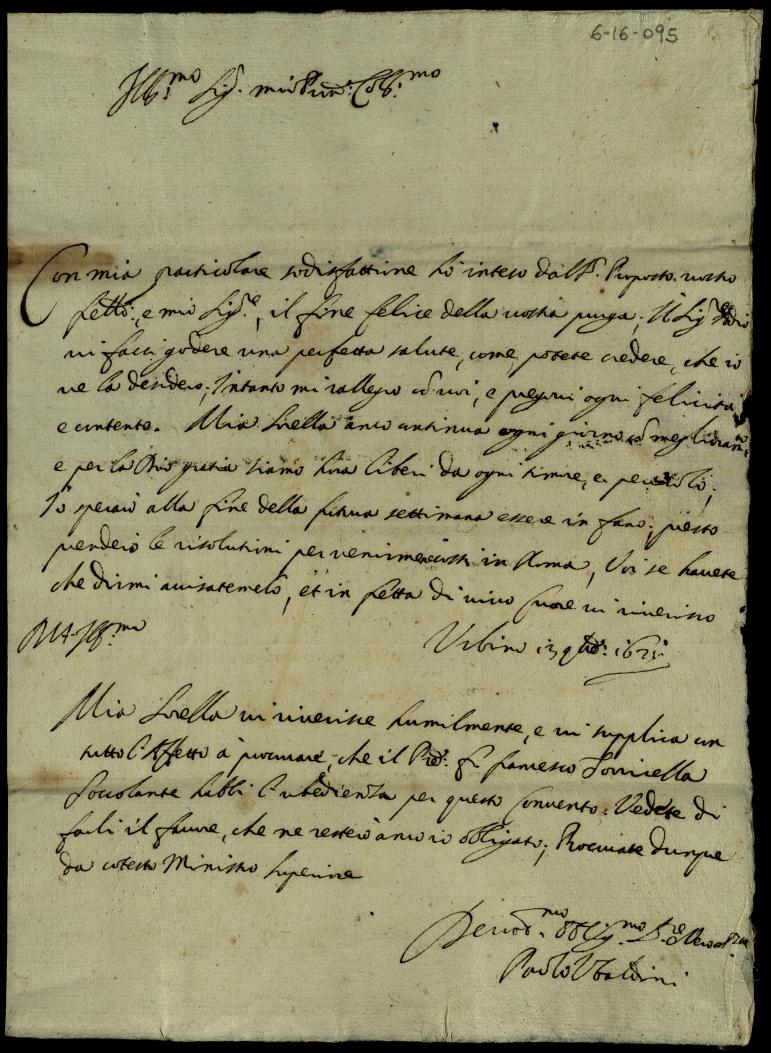 6-16-095
Ill.mo Sig.r mio P.ron Col.mo
Con mia particolare sodisfattione hò inteso dall S. Proposto nostro
fetto:, e mio Sig.re, il fine felice della vostra purga; Il Sig.re Iddio
vi facci godere una perfetta salute, come potete credere, che io
ve la desidero; Intanto mi rallegro cõ voi, e pregovi ogni felicità
e contento. Mia Sorella anco continua ogni giorno cõ meglioram.to
e per la Dio gratia siamo hora liberi da ogni timore, e pericolo;
Io sperarò alla fine della futura settimana essere in fano; presto
prenderò le risolutioni per venirmene costì in Roma, Voi se havete
che dirmi avisatemelo, et in fretta di vivo Cuore vi riverisco
Di VS Ill.ma
Urbino 13
Mia Sorella vi riverisce humilmente, e vi supplica con
tutto l'Affetto à procurare, che il Pre: f. francesco
Zoccolante habbi l'ubedienza per questo Convento: Vedete di
farli il favore, che ne resterò anco io obligato; Procurate dunque
da cotesto Ministro superiore
Devot.mo Oblig.mo S.re
Paolo Ubaldini